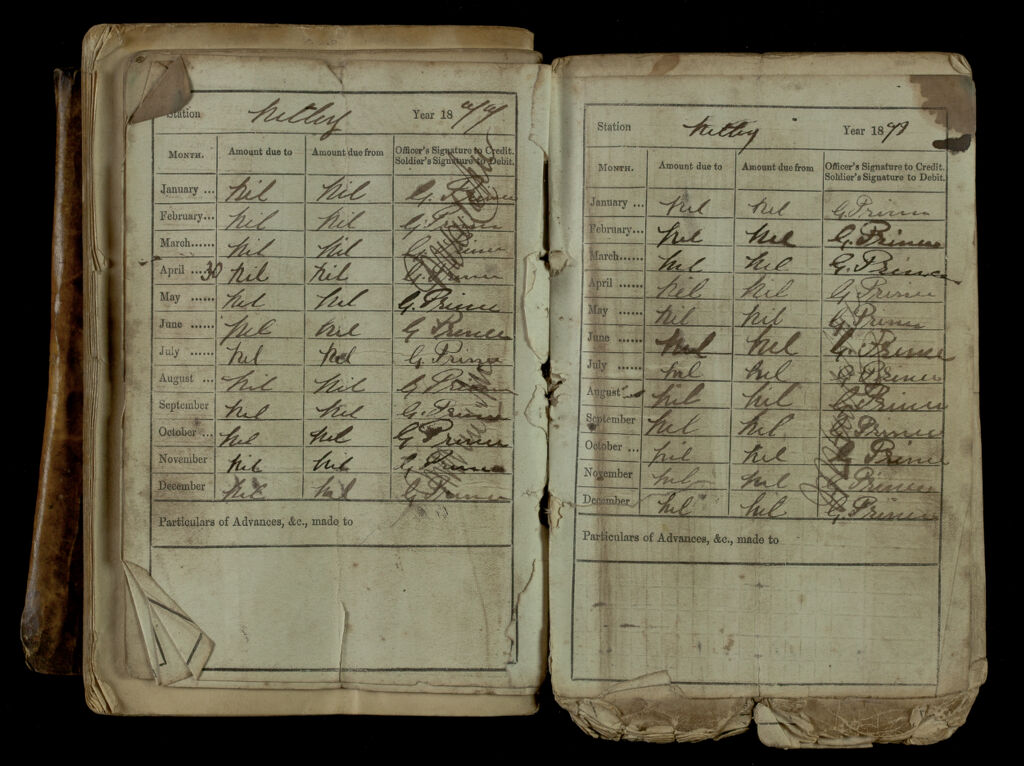 Station Netley Year 18
MONTH. Amount due to Amount due from Officer's Signature to Credit. Soldier's Signature to Debit.
January ... Nil Nil G. Prince
February... Nil Nil G. Prince
March...... Nil Nil G. Prince
April ... 30 Nil Nil G. Prince
May ...... Nil Nil G. Prince
June ...... Nil Nil G Prince
July ...... Nil Nil G Prince
August ... Nil Nil G Prince
September Nil Nil G. Prince
October ... Nil Nil G Prince
November Nil Nil G Prince
December Nil Nil G Prince
Particulars of Advances, &c., made to
Station Netley Year 18
MONTH. Amount due to Amount due from Officer's Signature to Credit. Soldier's Signature to Debit.
January ... Nil Nil G Prince
February... Nil Nil G. Prince
March...... Nil Nil G. Prince
April ...... Nil Nil G Prince
May ...... Nil Nil G Prince
June ...... Nil Nil G. Prince
July ...... Nil Nil G Prince
August ... Nil Nil G Prince
September Nil Nil G Prince
October ... Nil Nil G Prince
November Nil Nil G Prince
December Nil Nil G. Prince
Particulars of Advances, &c., made to